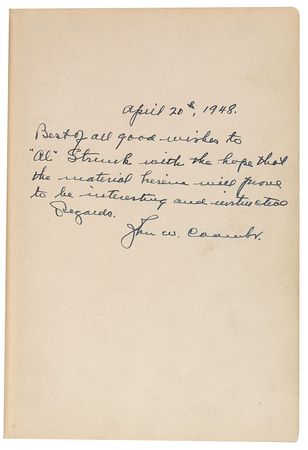 April 20th, 1948.
Best of all good wishes to
"Al" Strunk with the hope that
the material herein will prove
to be interesting and instructive
Regards.
John W. Coombs.